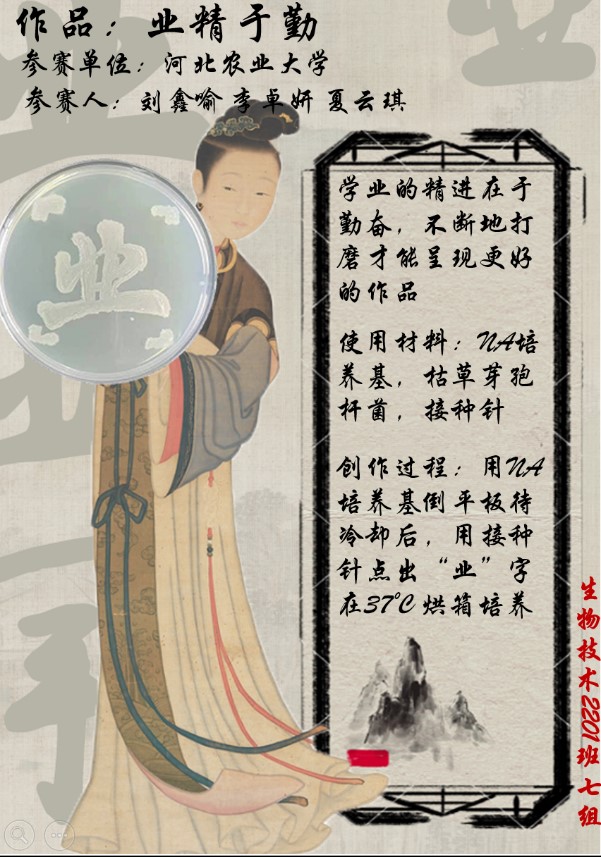 作品：业精于勤
参赛单位：河北农业大学
参赛人：刘鑫喻 李卓妍 夏云琪
业
学业的精进在于
勤奋，不断地打
磨才能呈现更好
的作品
使用材料：NA培
养基，枯草芽孢
杆菌，接种针
创作过程：用NA
培养基倒平板待
冷却后，用接种
针点出“业”字
在37℃烘箱培养
生物技术2201班七组